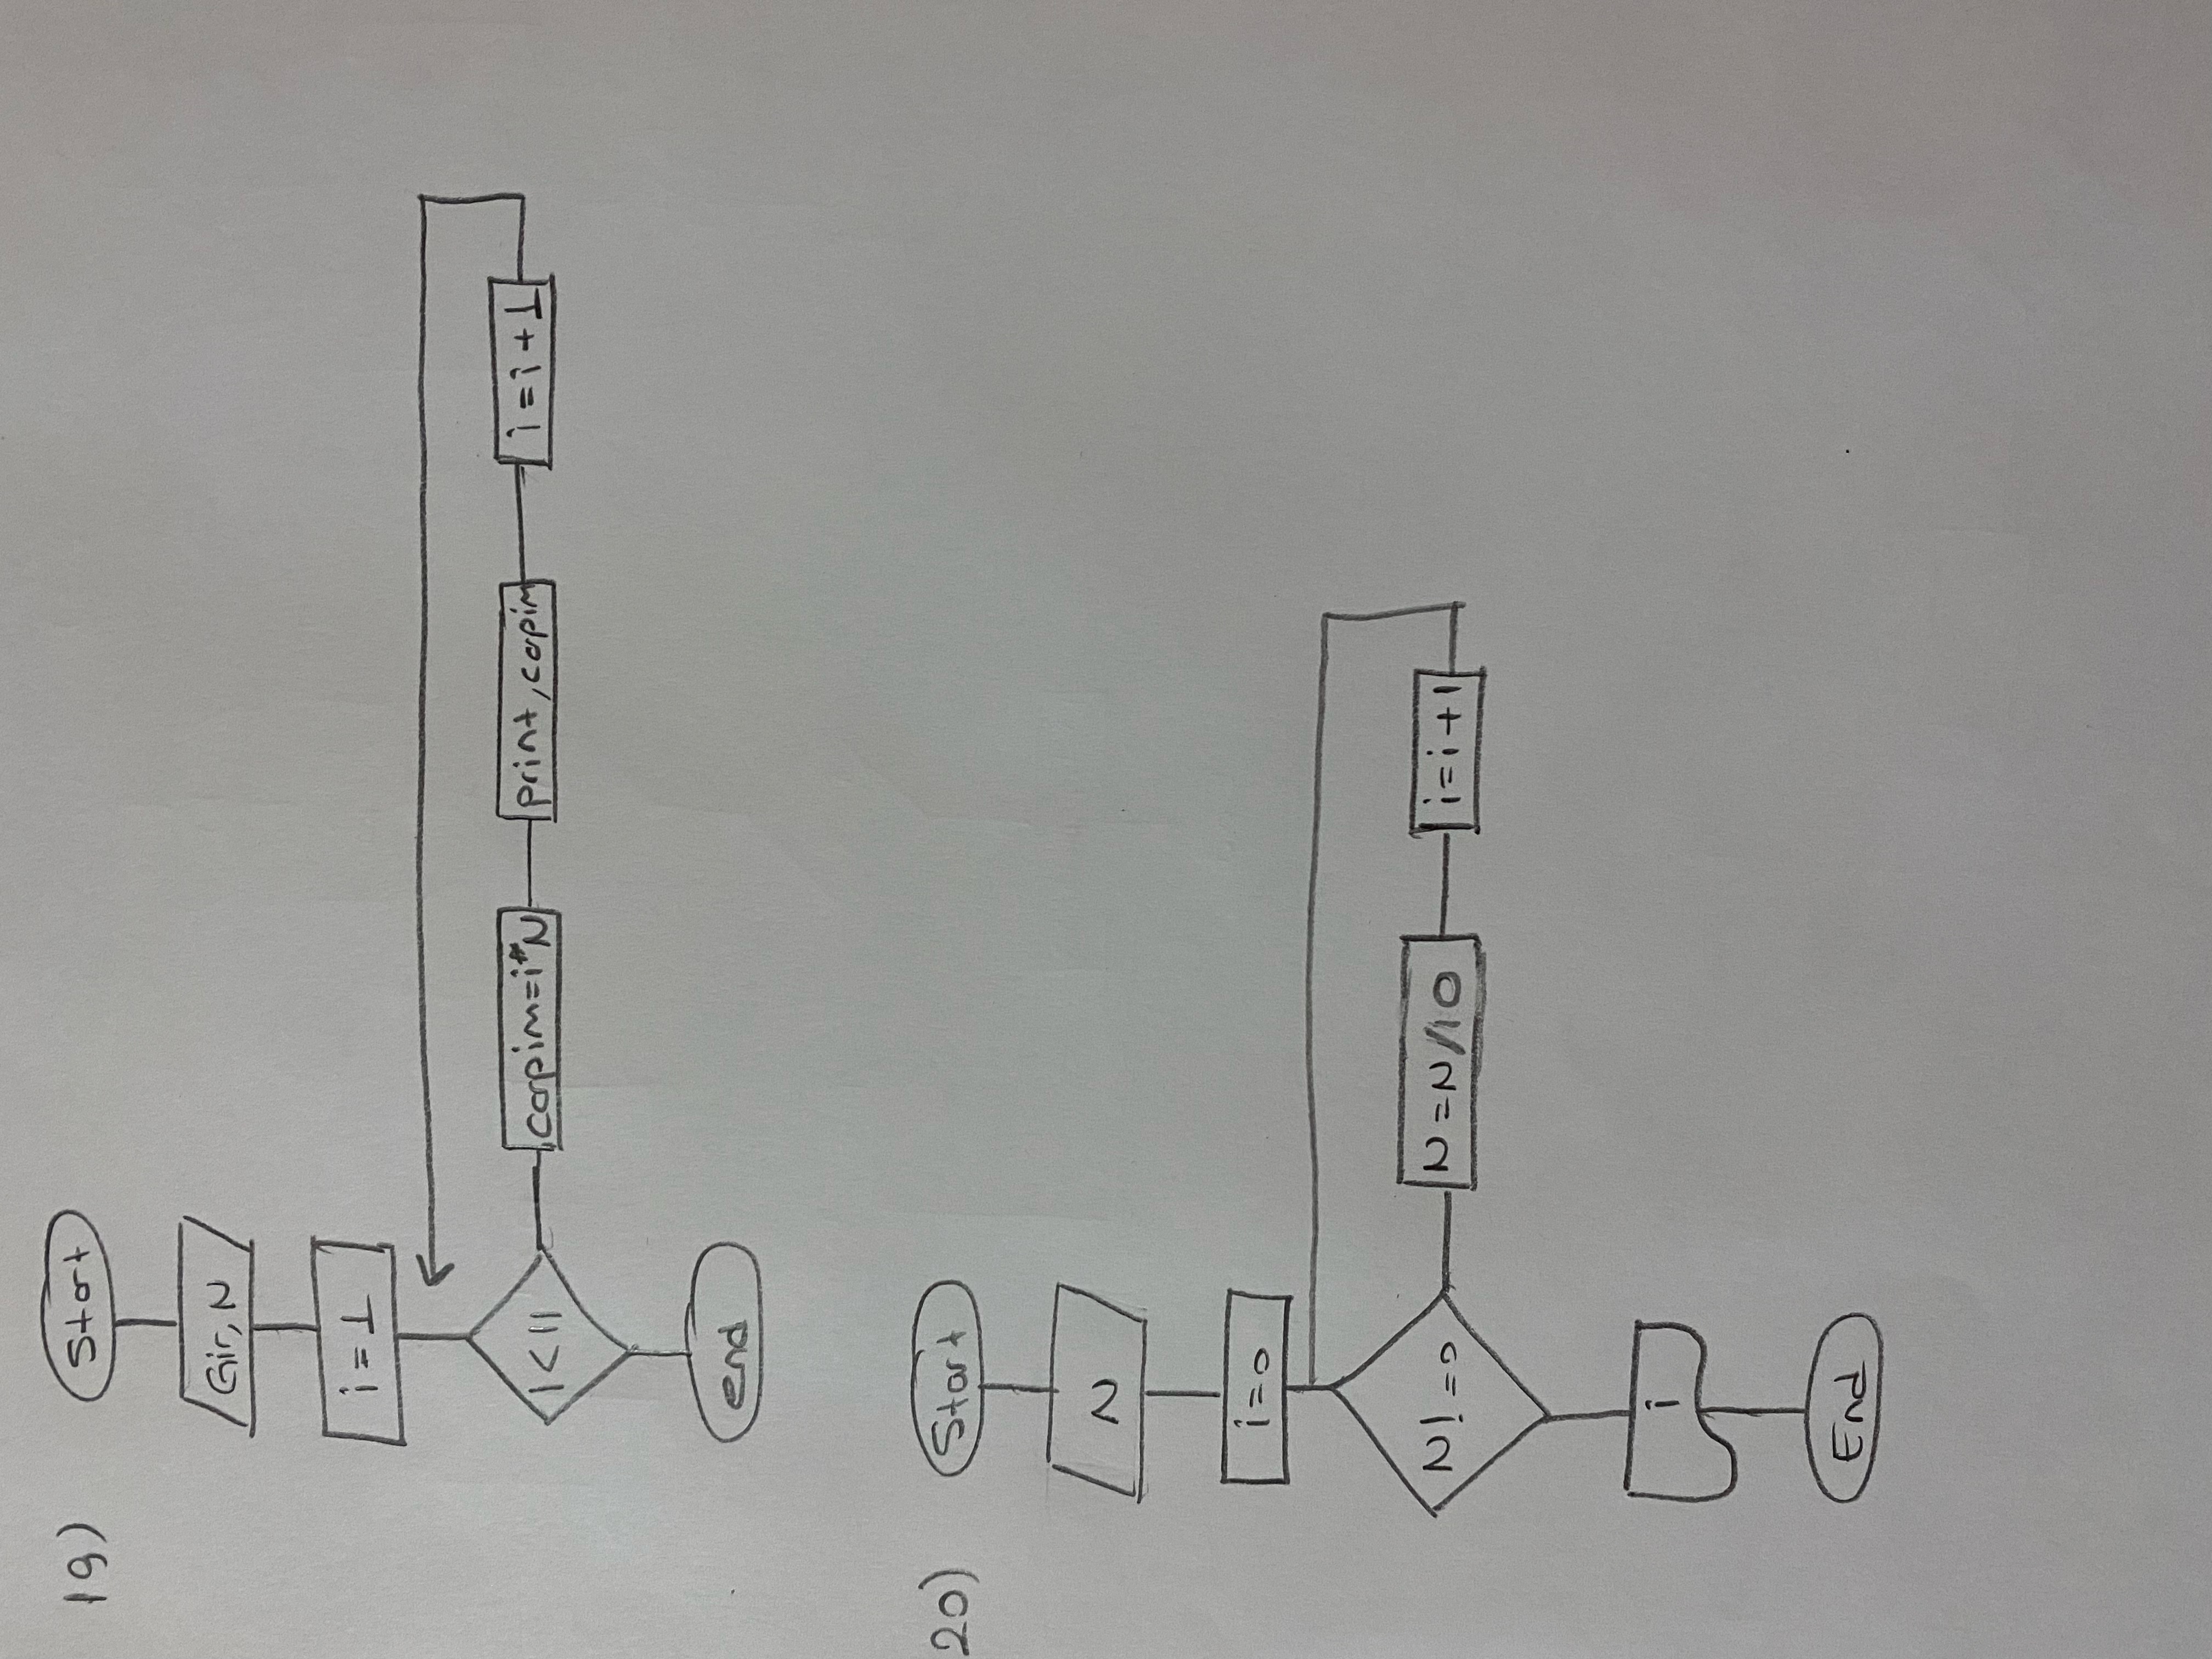 19)
Start
Gir, N
i = 1
I<11
carpim=i*N
print, capim
i = i + 1
end
20)
Start
N
i=0
N! =0
N =N/10
i=i+1
i
End